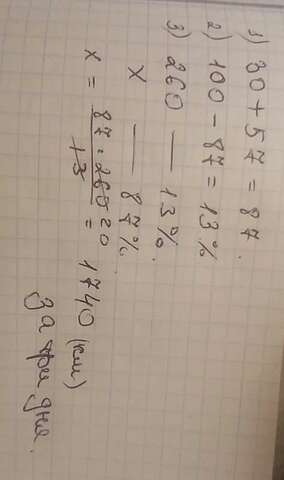 1) 30 + 57 = 87.
2) 100 - 87 = 13%
3) 260 — 13%.
x — 87%.
x = 87 · 260 20 / 13 = 1740 (км)
За три дня.